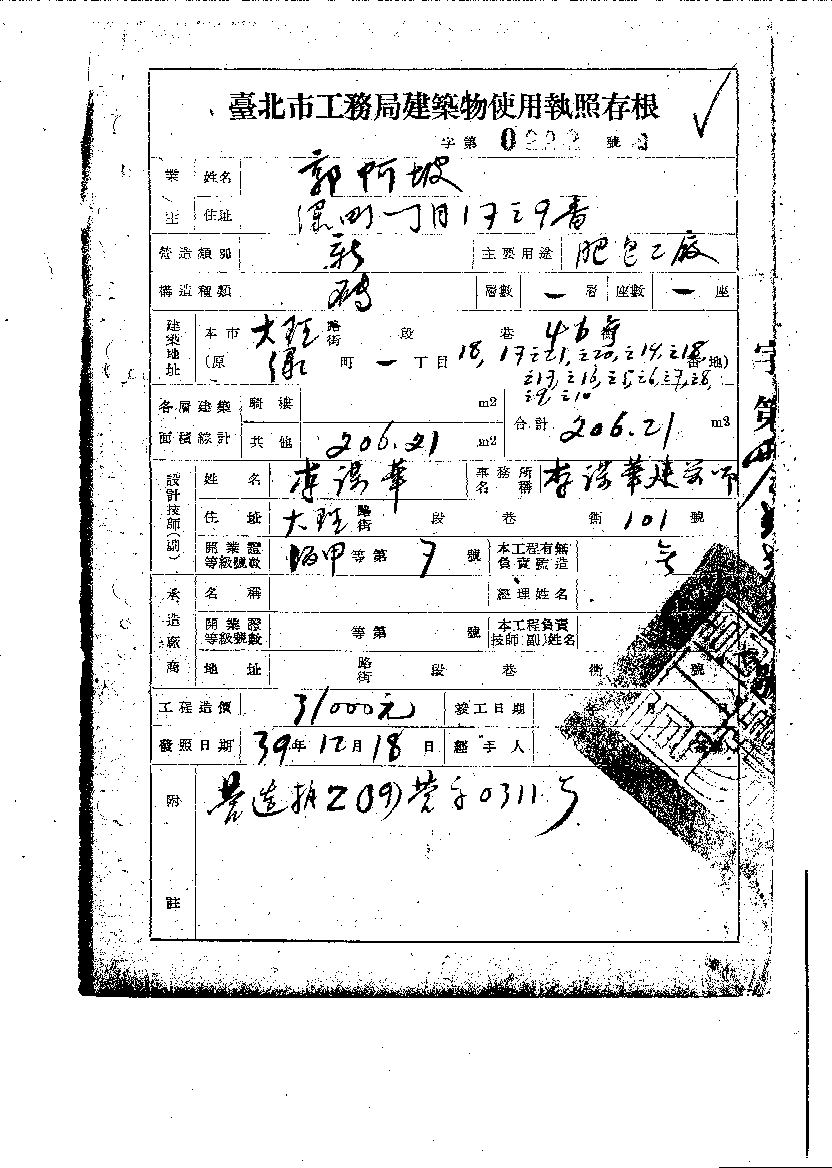 臺北市工務局建築物使用執照存根
字第0222號
業主 姓名 郭阿坡
住址 町一丁目17之9番
營造類別 新 主要用途 肥皂工廠
構造種類 磚 層數 一 層 座數 一 座
建築地址 本市 大理 路街 段 巷 46 號
(原 綠 町 一 丁目 18, 17之21, 之20, 之19, 之18 番地)
之17, 之16, 之5, 之6, 之7, 之8,
之9, 之10
各層建築面積總計 騎樓 m2 合計 206.21 m2
其他 206.21 m2
設計技師(副) 姓名 李謀華 事務所名稱 李謀華建築師
住址 大理 路街 段 巷 衖 101 號
開業證等級號數 甲 等第 7 號 本工程有無負責監造 無
承造廠商 名稱 經理姓名
開業證等級號數 等第 號 本工程負責技師(副)姓名
地址 路街 段 巷 衖 號
工程造價 31000元 竣工日期 年 月 日
發照日期 39年12月18日 經手人
附註 營造執 (39)營字0311号
字第